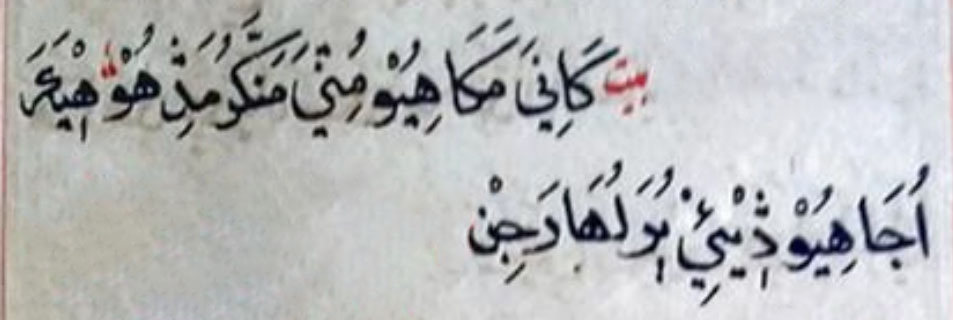 بيت كَانِيَ مَكَا هِيُوْ مُنِيَ مَنَكَرُ مَذِ هُوْ هِيْعَرَ
اُجَا هِيُوْ ذِيْئِيْ پُوَ لُهَارَ جِنْ